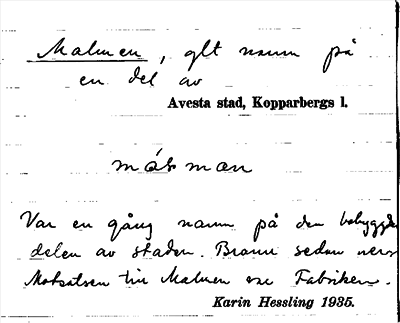 Malmen, glt namn på
en del av
Avesta stad, Kopparbergs l.
Var en gång namn på den bebyggda
delen av staden. Brann sedan ner.
Motsatsen till Malmen var Fabriken.
Karin Hessling 1935.